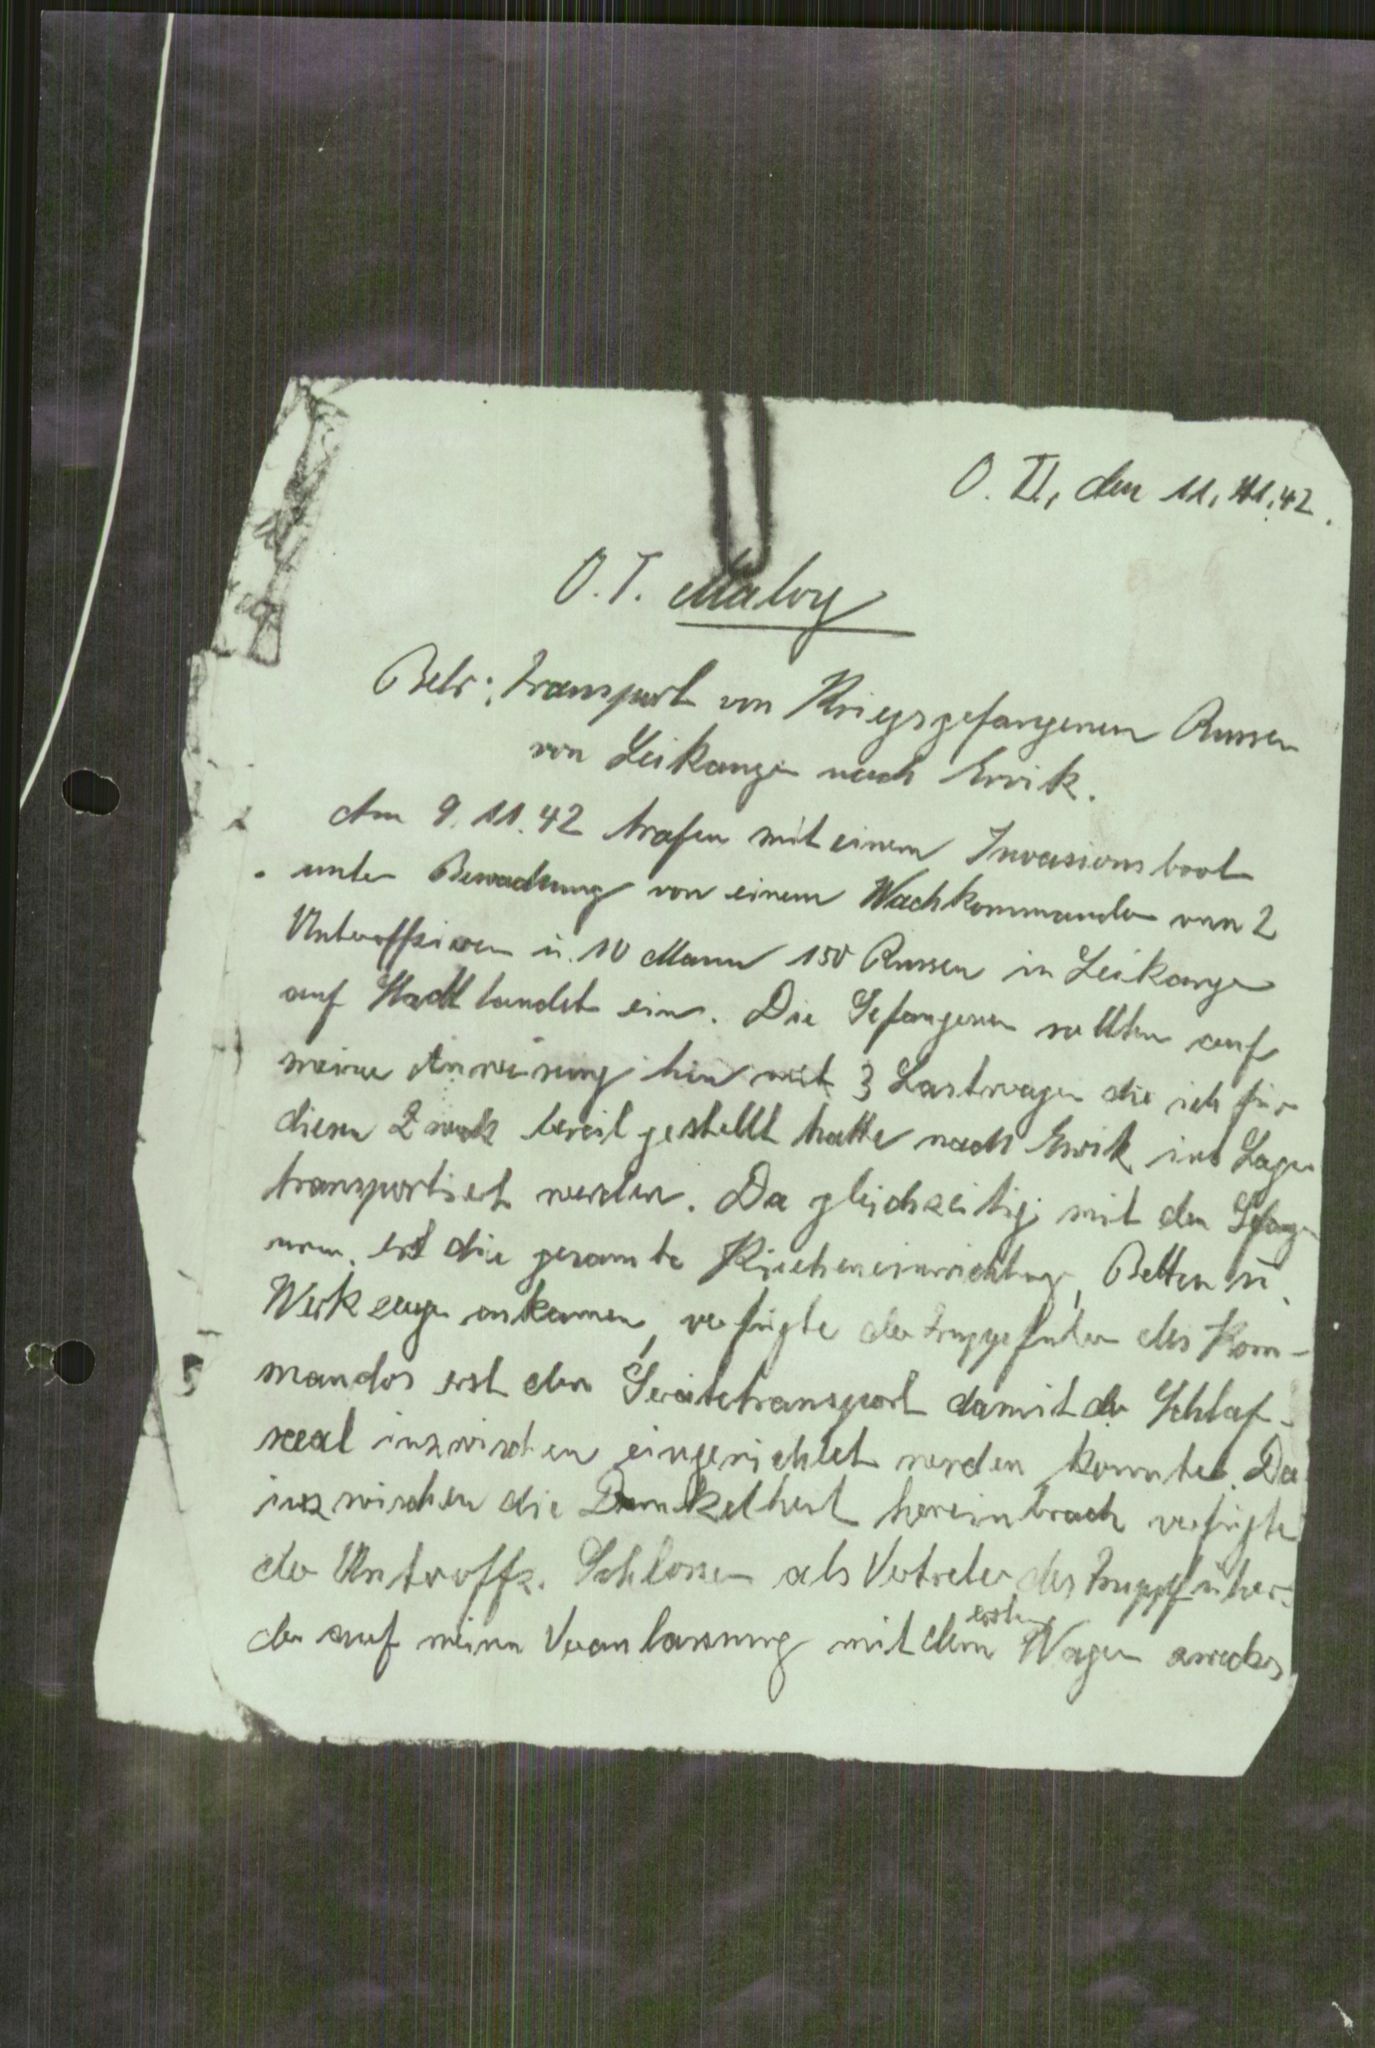 O. U., den 11.11.42.
O.T. Maloy
Betr.: Transport von Kriegsgefangenen Russen
von Leikanger nach Ervik.
Am 9.11.42 trafen mit einem Invasionsboot
unter Bewachung von einem Wachkommander von 2
Unteroffizieren u. 10 Mann 150 Russen in Leikanger
auf Stadtlandet ein. Die Gefangenen sollten auf
meine Anweisung hin mit 3 Lastwagen die ich für
diesen Zweck bereitgestellt hatte nach Ervik ins Lager
transportiert werden. Da gleichzeitig mit den Gefange
nen die gesamte Kücheneinrichtung, Betten u.
Werkzeuge ankamen, verfügte der Truppführer des Kom-
mandos erst den Gerätetransport damit der Schlaf-
saal inzwischen eingerichtet werden konnte. Da
inzwischen die Dunkelheit hereinbrach verfügte
der Unteroffz. Schlosser als Vertreter des Truppführer-
der auf meine Veranlassung mit dem ersten Wagen zwecks